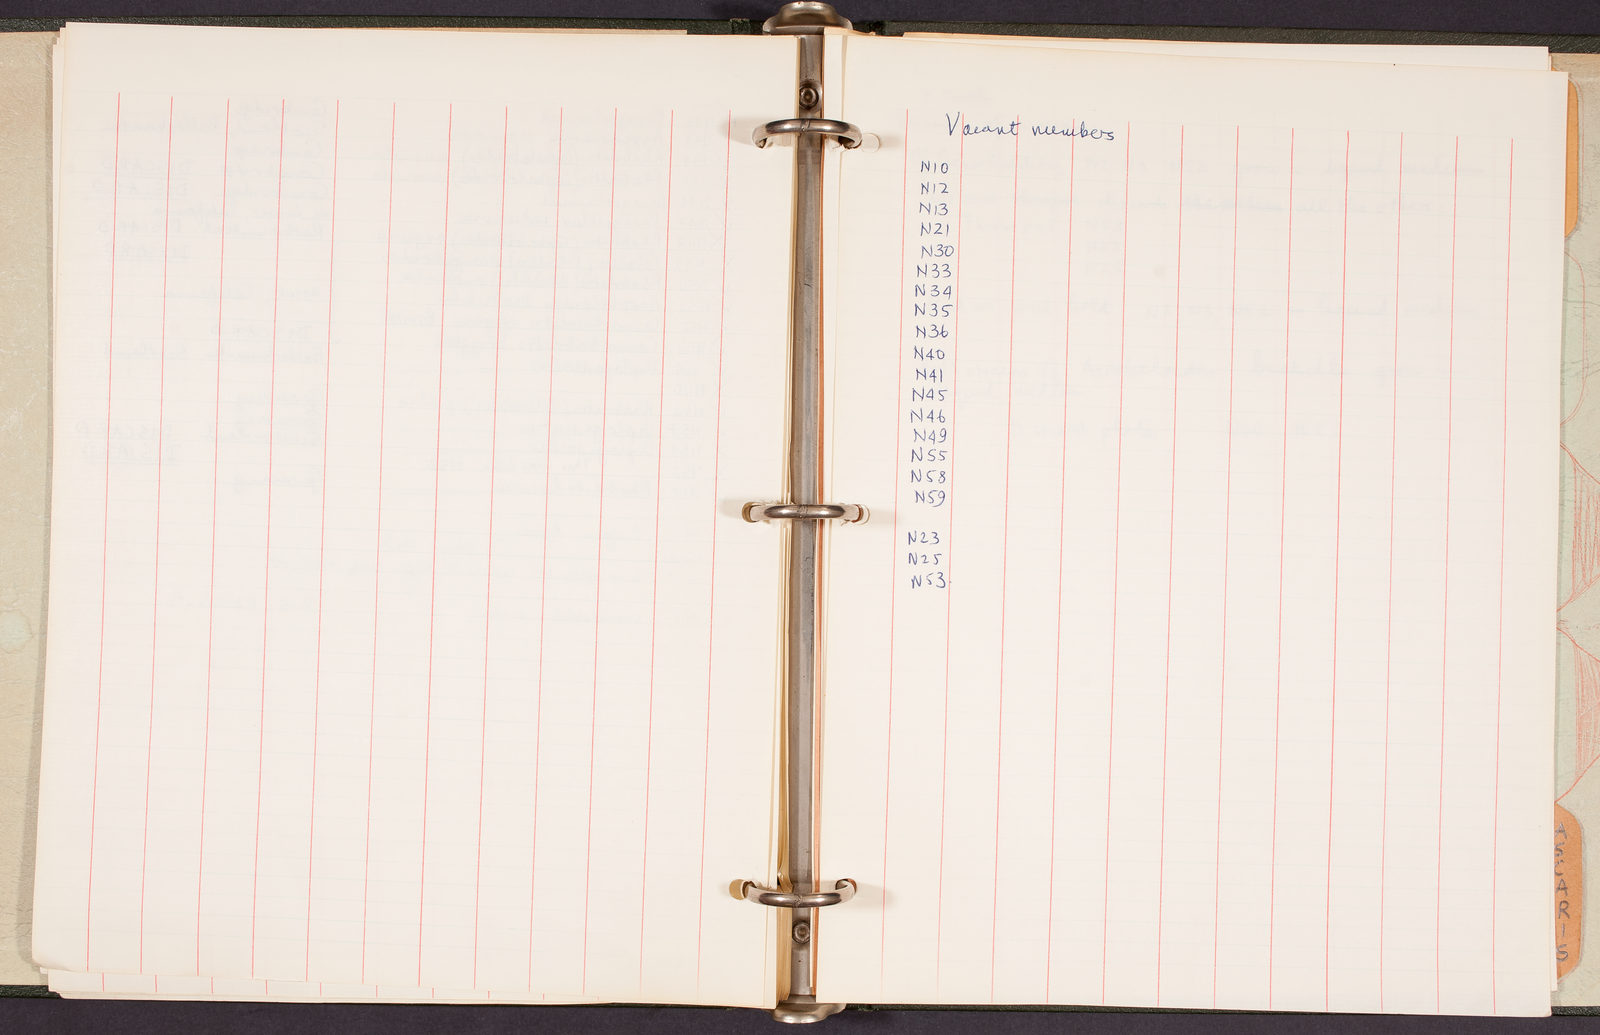 Vacant numbers
N10
N12
N13
N21
N30
N33
N34
N35
N36
N40
N41
N45
N46
N49
N55
N58
N59
N23
N25
N53
ASCARIS